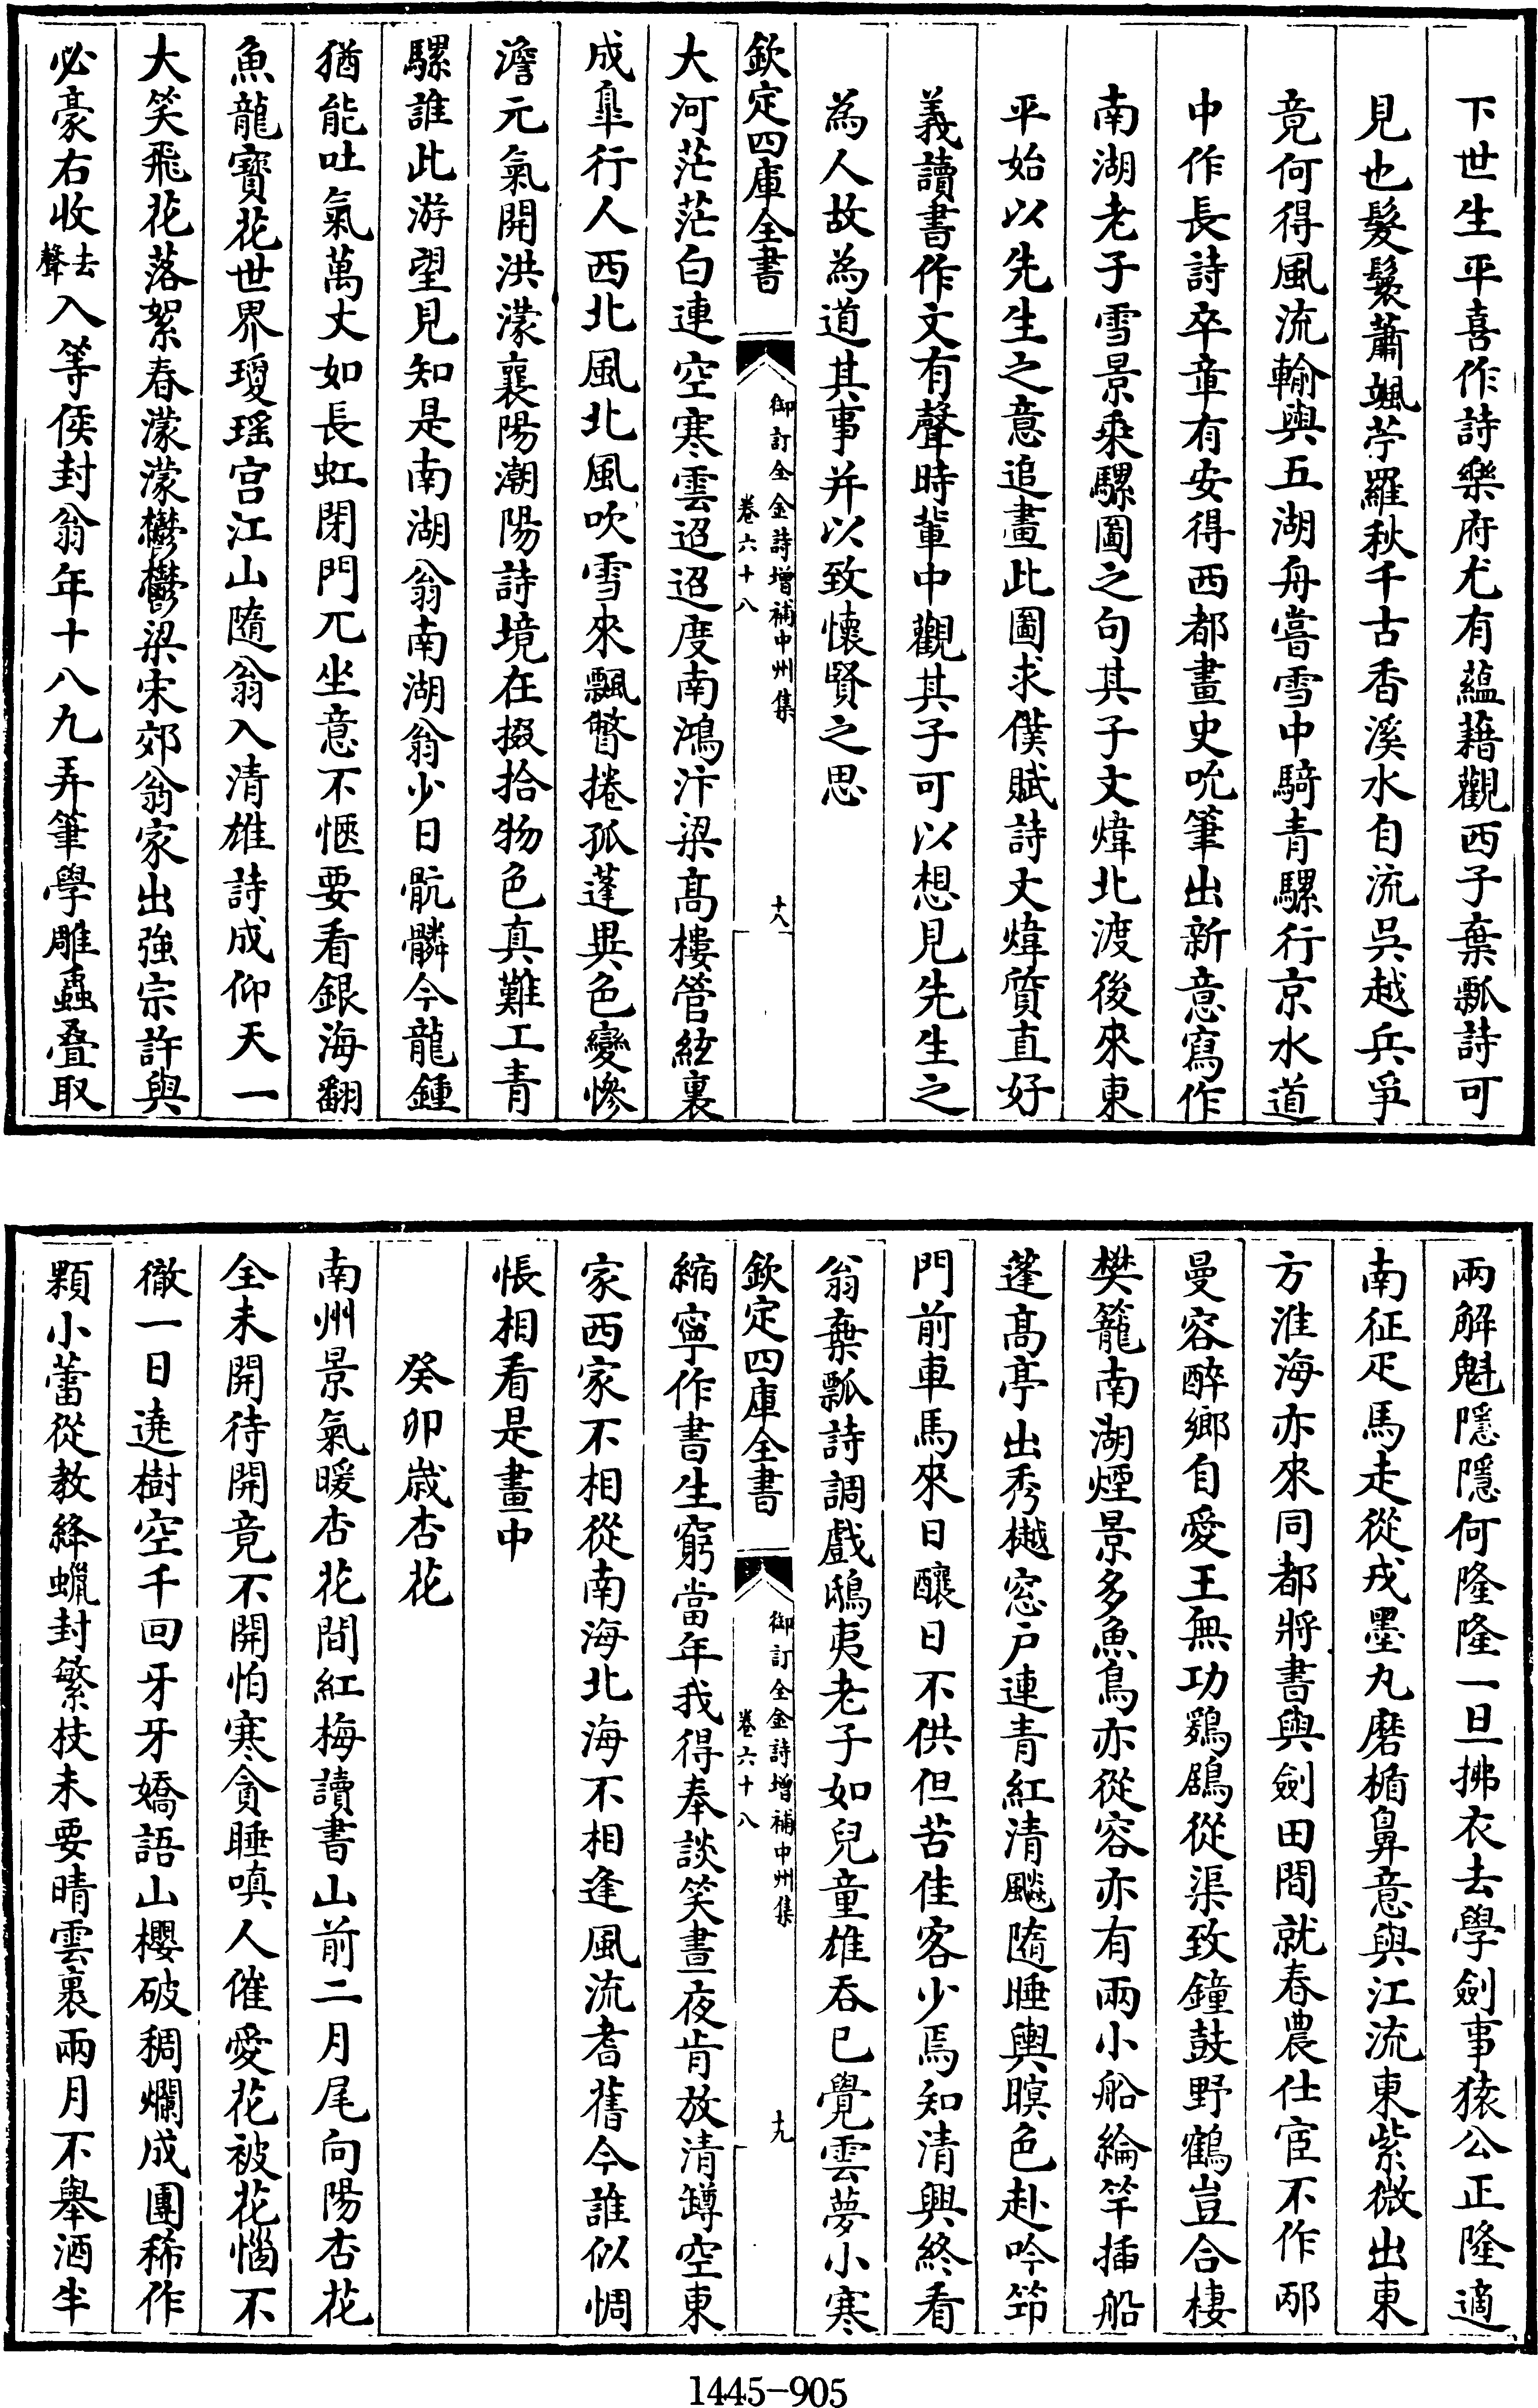 下世生平喜作詩樂府尤有藴藉觀西子棄瓢詩可
見也髮鬟蕭颯苧羅秋千古香溪水自流吳越兵爭
竟何得風流輸與五湖舟嘗雪中騎青騾行京水道
中作長詩卒章有安得西都畫史吮筆出新意寫作
南湖老子雪景乘騾圖之句其子丈煒北渡後來東
平始以先生之意追畫此圖求僕賦詩丈煒質直好
義讀書作文有聲時輩中觀其子可以想見先生之
為人故為道其事并以致懷賢之思
欽定四庫全書
御訂全金詩增補中州集
卷六十八
十八
大河茫茫白連空寒雲迢迢度南鴻汴梁髙樓管絃裏
成臯行人西北風北風吹雪來飄瞥捲孤蓬異色變慘
澹元氣開洪濛襄陽潮陽詩境在掇拾物色真難工青
騾誰此游望見知是南湖翁南湖翁少日骯髒今龍鍾
猶能吐氣萬丈如長虹閉門兀坐意不愜要看銀海翻
魚龍寳花世界瓊瑶宫江山隨翁入清雄詩成仰天一
大笑飛花落絮春濛濛欝欝梁宋郊翁家出強宗許與
必豪右收去聲入等侯封翁年十八九弄筆學雕蟲叠取
兩解魁隠隠何隆隆一旦拂衣去學劍事猿公正隆適
南征疋馬走從戎墨丸磨楯鼻意與江流東紫微出東
方淮海亦來同都將書與劍田間就春農仕宦不作邴
曼容醉鄉自愛王無功鷄鶋從渠致鐘鼓野鶴豈合棲
樊籠南湖煙景多魚鳥亦從容亦有兩小船綸竿插船
蓬髙亭出秀樾窓户連青紅清飈隨睡輿暝色赴吟笻
門前車馬來日釀日不供但苦佳客少焉知清興終看
翁棄瓢詩調戲鴟夷老子如兒童雄吞已覺雲夢小寒
欽定四庫全書
御訂全金詩增補中州集
卷六十八
十九
縮寧作書生窮當年我得奉談笑晝夜肯放清罇空東
家西家不相從南海北海不相逢風流耆舊今誰似惆
悵相看是畫中
癸卯歳杏花
南州景氣暖杏花間紅梅讀書山前二月尾向陽杏花
全未開待開竟不開怕寒貪睡嗔人催愛花被花惱不
徹一日遶樹空千回牙牙嬌語山櫻破稠爛成團稀作
顆小蕾從教絳蠟封繁枝未要晴雲裏兩月不舉酒半
1445-905